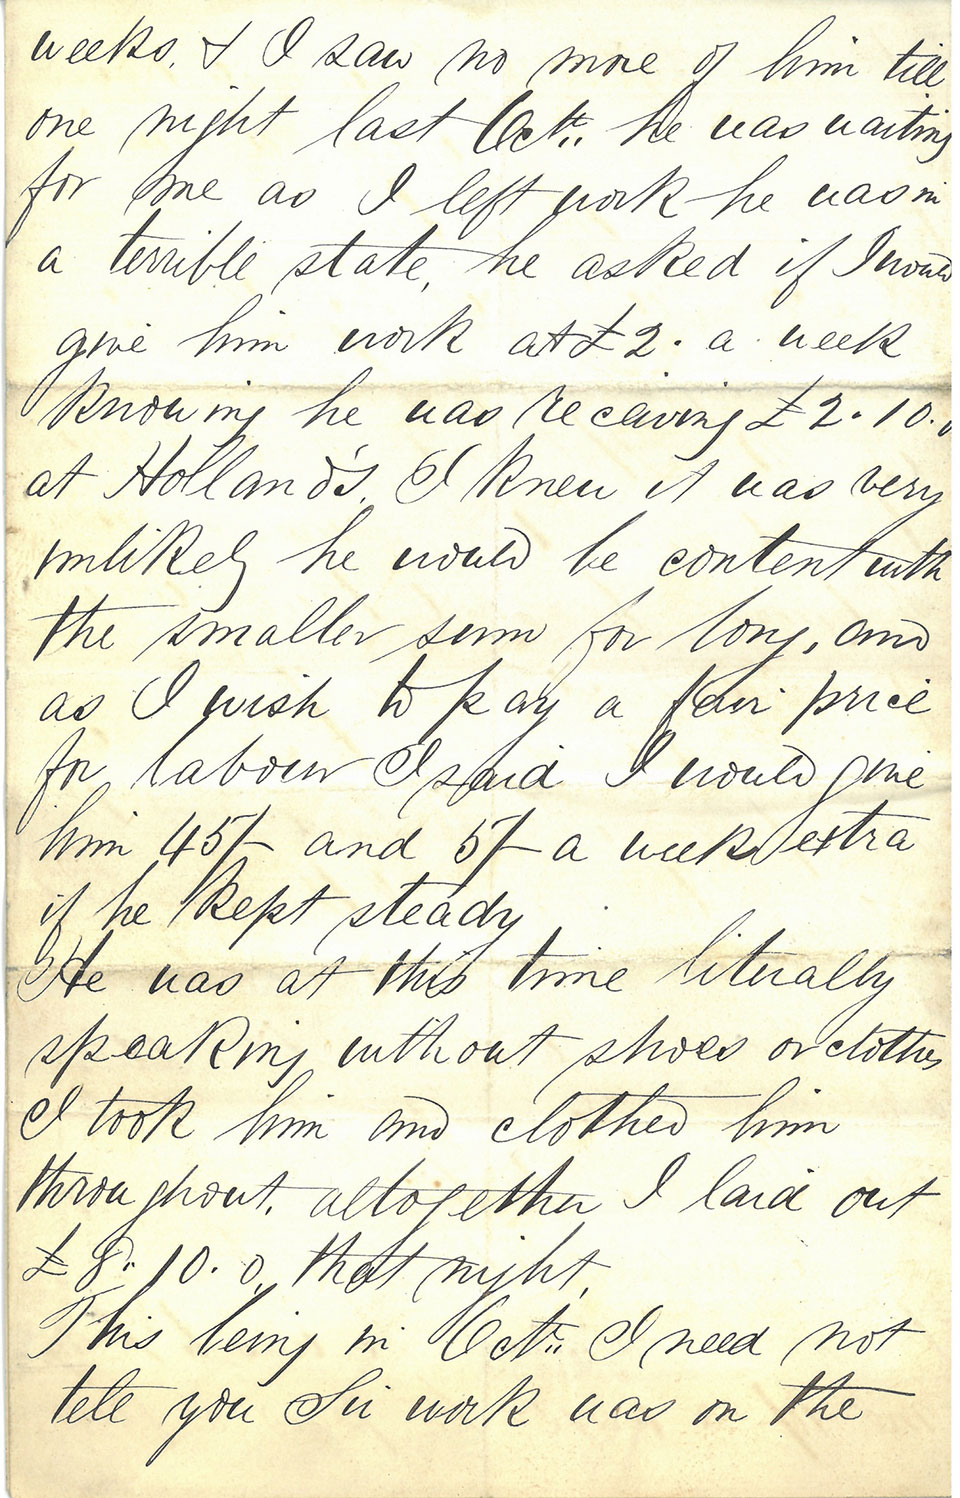 weeks. & I saw no more of him till
one night last Octr. he was waiting
for me as I left work he was in
a terrible state, he asked if I would
give him work at £2. a week
knowing he was receiving £2.10.0
at Holland's. I knew it was very
unlikely he would be content with
the smaller sum for long, and
as I wish to pay a fair price
for labour I said I would give
him 45/- and 5/- a week extra
if he kept steady
He was at this time literally
speaking without shoes or clothes
I took him and clothed him
throughout. altogether I laid out
£8.10.0. that night,
This being in Octr. I need not
tell you Sir work was on the